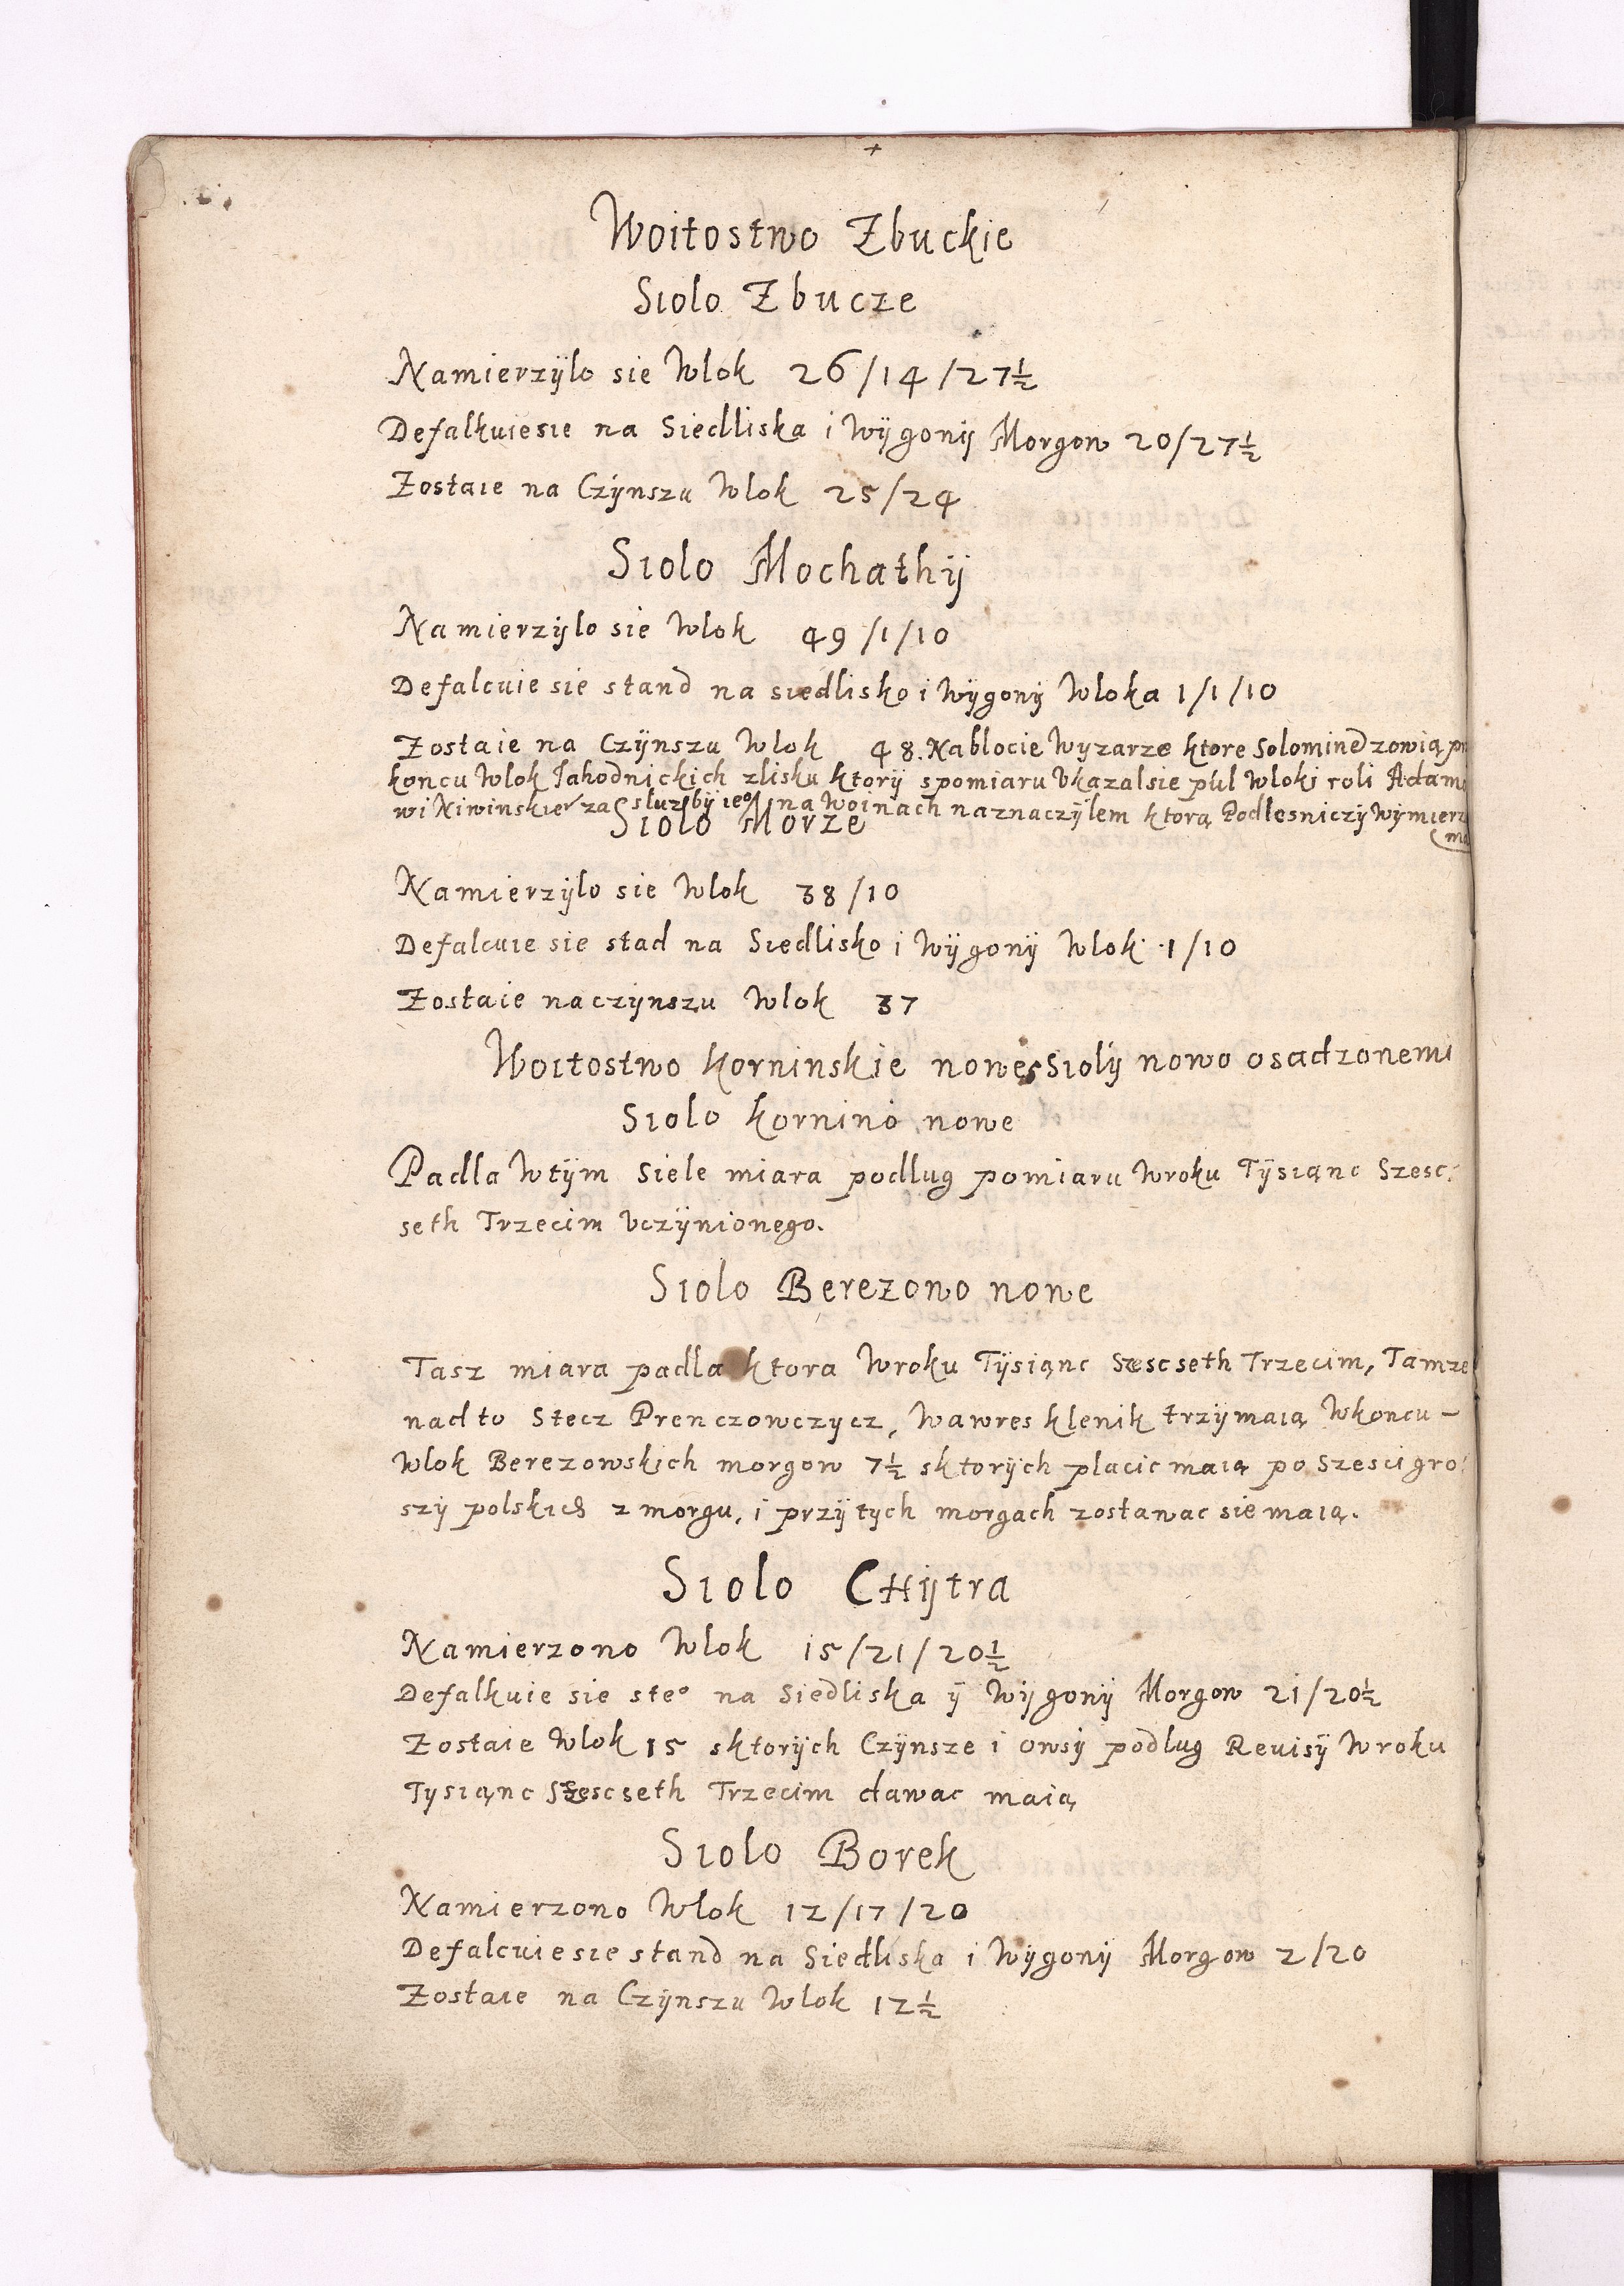 Woitostwo Zbuckie
Siolo Zbucze
Namierzÿlo sie Wlok 26/14/27½
Defalkuiesie na Siedliska i Wÿgonÿ Morgow 20/27½
Zostaie na Czÿnszu Wlok 25/24
Siolo Mochathÿ
Namierzÿlo sie Wlok 49/1/10
Defalcuie sie stand na siedlisko i Wÿgonÿ Wloka 1/1/10
Zostaie na Czÿnszu Wlok 48. Nablocie Wyzarze ktore Solomined zowią
koncu Wlok Jahodnickich zlisku ktorÿ spomiaru Vkazalsie pul Wloki roli
wi Niwinskie͏ͬ za sluzbÿ ieᵒ na Woinach naznaczÿlem ktorą Podlesniczÿ
Siolo Morze
Namierzÿlo sie Wlok 38/10
Defalcuie sie stad na Siedlisko i Wÿgonÿ Wlok 1/10
Zostaie naczÿnszu Wlok 37
Woitostwo Korninskie nowe sSiolÿ nowo osadzonemi
Siolo Kornino nowe
Padla Wtÿm Siele miara podlug pomiaru Wroku Tÿsiąnc Szesc
seth Trzecim Vczÿnionego.
Siolo Berezowo nowe
Tasz miara padla ktora Wroku Tÿsiąnc Szescseth Trzecim, Tamze
nadto Stecz Prenczowczycz, Wawres klenik trzÿmaią Wkoncu –
Wlok Berezowskich morgow 7½ sktorÿch placic maią po Szesci gro
szÿ polskich z morgu, i przÿ tych morgach zostawac sie maią.
Siolo CHÿtra
Namierzono Wlok 15/21/20½
Defalkuie sie steᵒ na Siedliska ÿ Wÿgonÿ Morgow 21/20½
Zostaie Wlok 15 sktorÿch Czÿnsze i owsÿ podlug Reuisÿ Wroku
Tysiąnc Szescseth Trzecim dawac maią
Siolo Borek
Namierzono Wlok 12/17/20
Defalcuiesie stand na Siedliska i Wÿgonÿ Morgow 2/20
Zostaie na Czÿnszu Wlok 12½